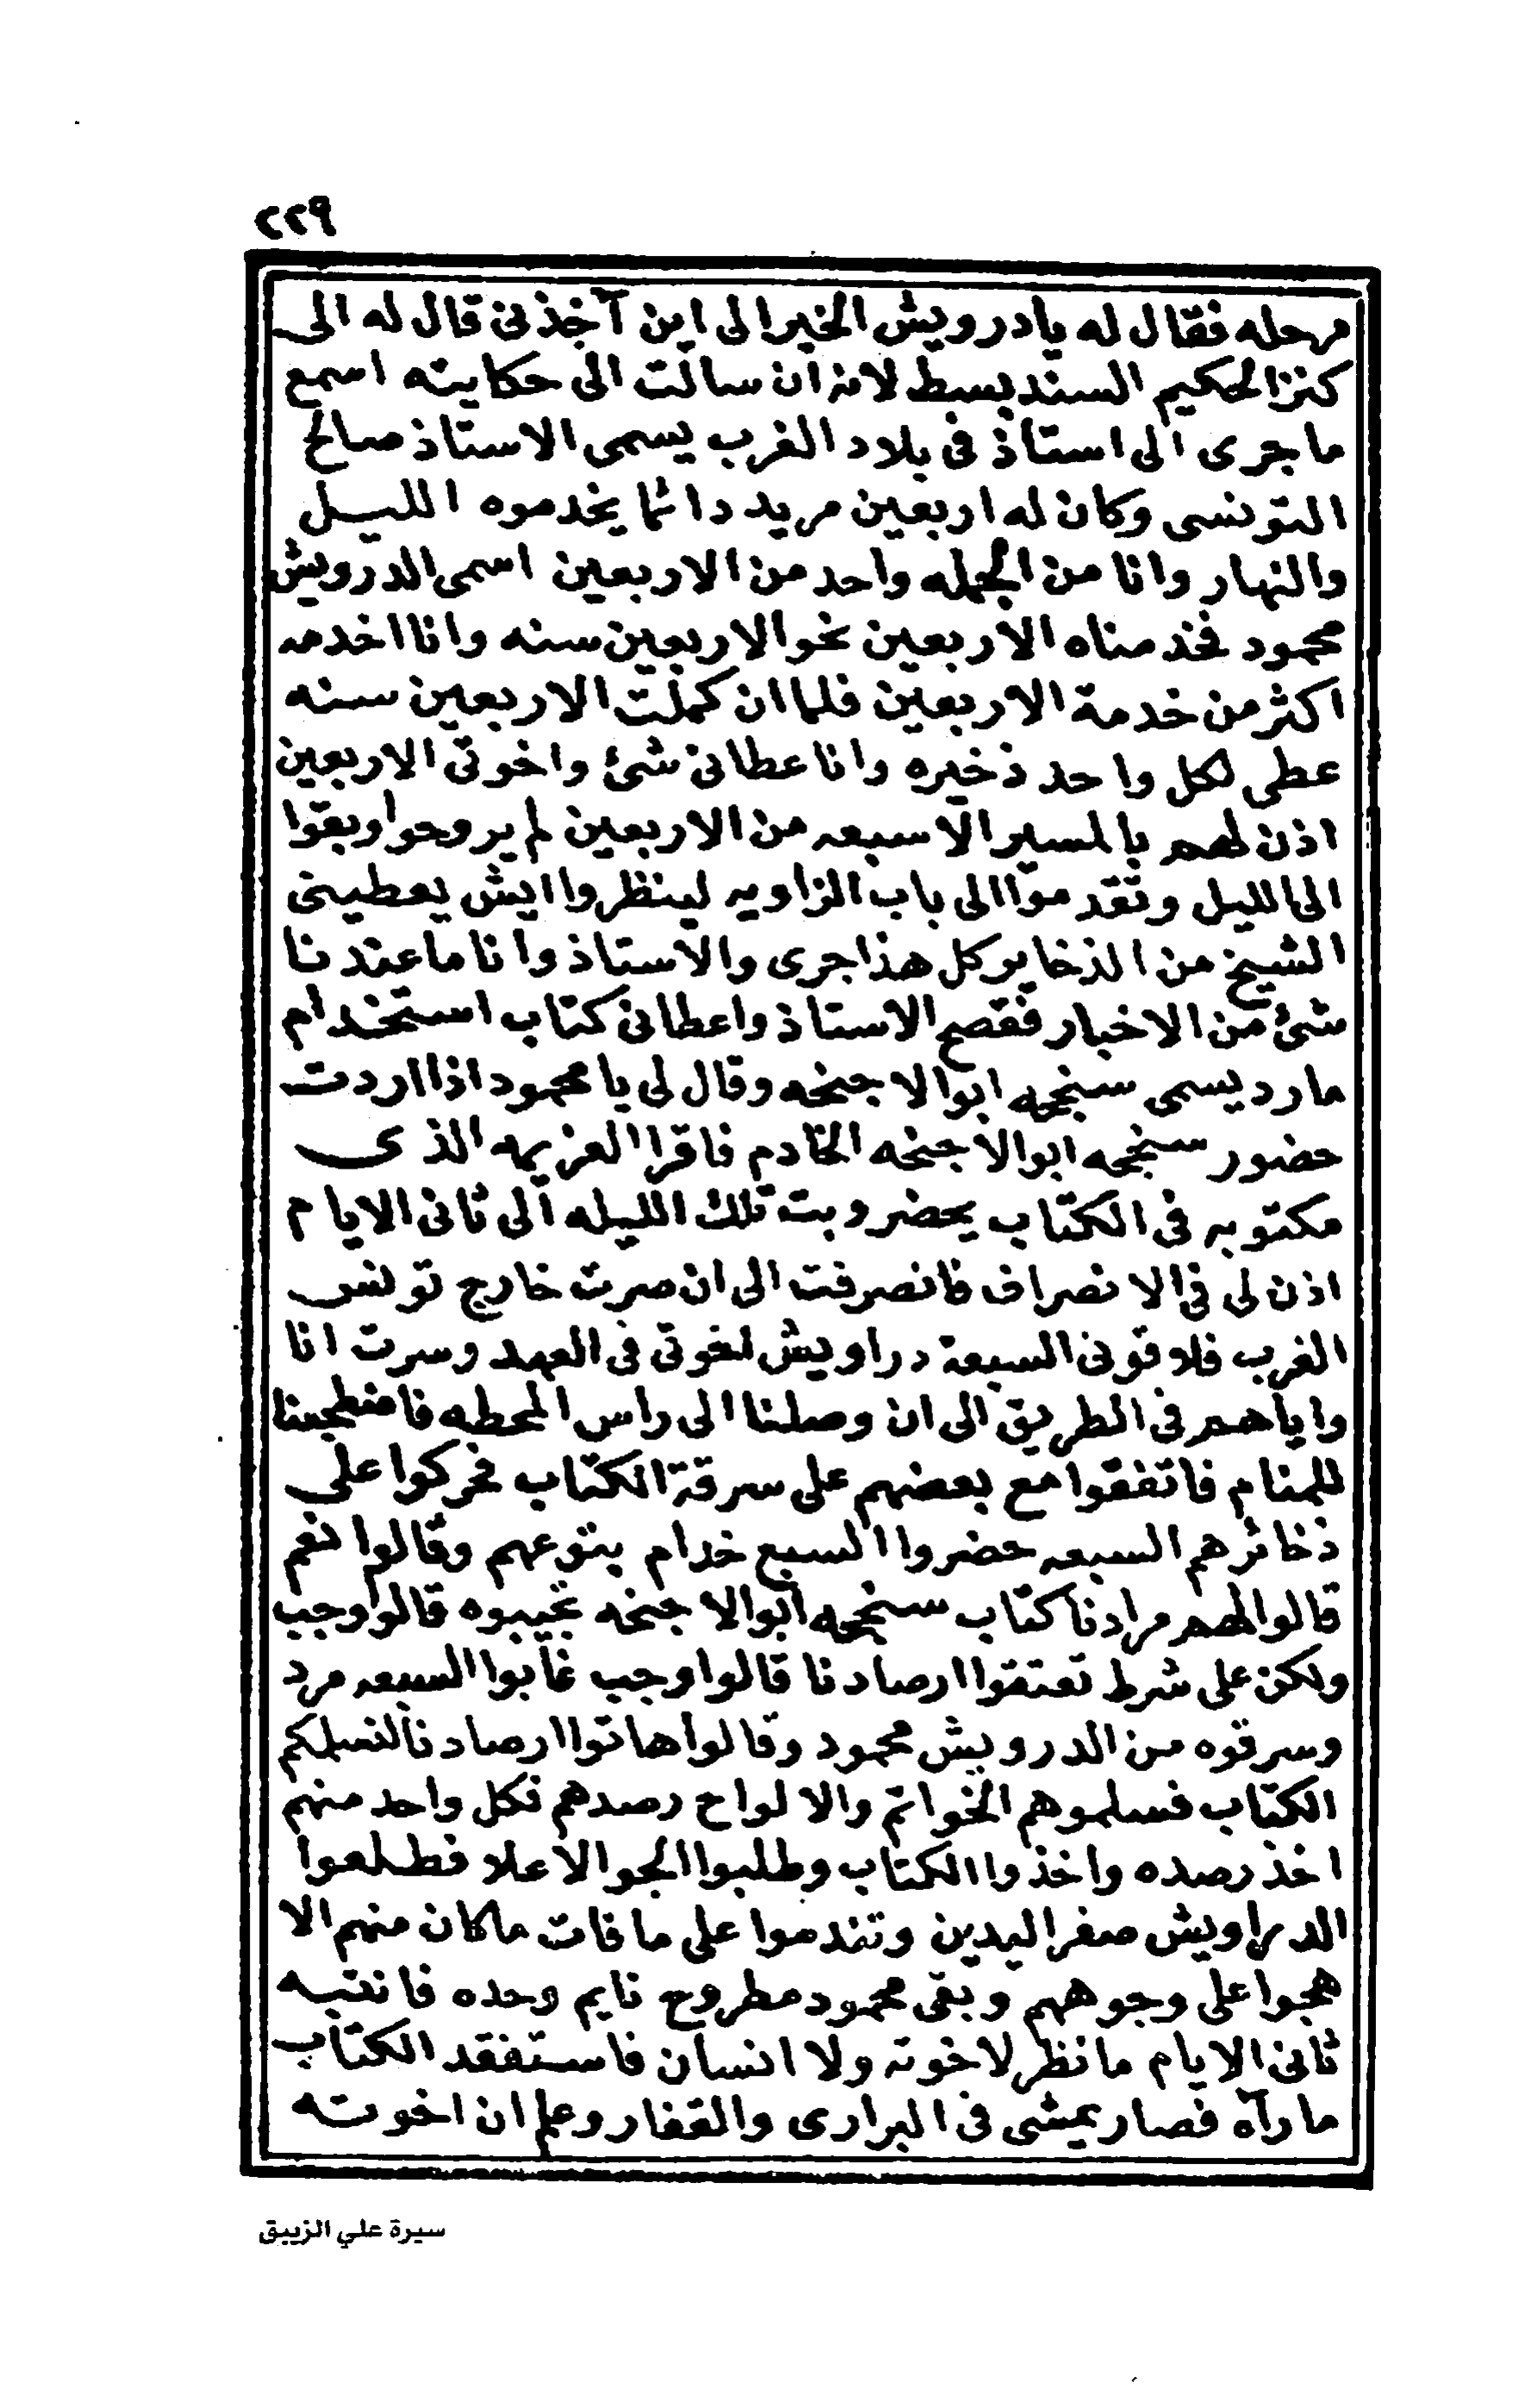 ٢٢٩
مرحله فقال له يادرويش الخير الى اين آخذنى قال له الى
كنز الحكيم السند بسط لانه ان سالت الى حكايته اسمع
ماجرى الى استاذ فى بلاد الغرب يسمى الاستاذ صالح
التونسى وكان له اربعين مريد دائما يخدموه الليل
والنهار وانا من الجمله واحد من الاربعين اسمى الدرويش
محمود فخدمناه الاربعين نحو الاربعين سنه وانا اخدمه
اكثر من خدمة الاربعين فلما ان كملت الاربعين سنه
عطى لكل واحد ذخيره وانا عطانى شئ واخوتى الاربعين
اذن لهم بالمسير الا سبعه من الاربعين لم يروحوا وبقوا
الى الليل وتقدموا الى باب الزاويه لينظروا ايش يعطينى
الشيخ من الذخاير كل هذا جرى والاستاذ وانا ما عندنا
شئ من الاخبار فقصح الاستاذ واعطانى كتاب استخدام
مارد يسمى سنجحه ابوالاجنحه وقال لى يا محمود اذا اردت
حضور سنجحه ابوالاجنحه الخادم فاقرا العزيمه الذى
مكتوبه فى الكتاب يحضر وبت تلك الليله الى ثانى الايام
اذن لى فى الانصراف فانصرفت الى ان صرت خارج تونس
الغرب فلاقونى السبعة دراويش اخوتى فى العهد وسرت انا
واياهم فى الطريق الى ان وصلنا الى راس المحطه فاضطجعنا
للمنام فاتفقوا مع بعضهم على سرقة الكتاب فحركوا على
ذخائرهم السبعه حضروا السبع خدام بتوعهم وقالوا نعم
قالوا لهم مرادنا كتاب سنجحه ابوالاجنحه تجيبوه قالوا وجب
ولكن على شرط تعتقوا ارصادنا قالوا وجب غابوا السبعه مرد
وسرقوه من الدرويش محمود وقالوا هاتوا ارصادنا لنسلمكم
الكتاب فسلموهم الخواتم والالواح رصدهم فكل واحد منهم
اخذ رصده واخذوا الكتاب وطلبوا الجو الاعلا فطلعوا
الدراويش صفر اليدين وتندموا على ما فات ما كان منهم الا
هجوا على وجوههم وبقى محمود مطروح نايم وحده فانتبه
ثانى الايام ما نظر لاخوته ولا انسان فاستفقد الكتاب
ما رآه فصار يمشى فى البرارى والقفار وعلم ان اخوته
سيرة علي الزيبق